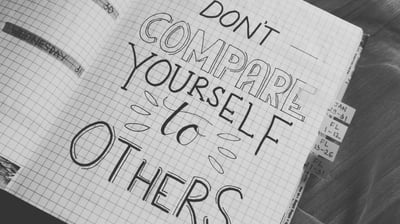 DON'T
COMPARE
YOURSELF
to
OTHERS